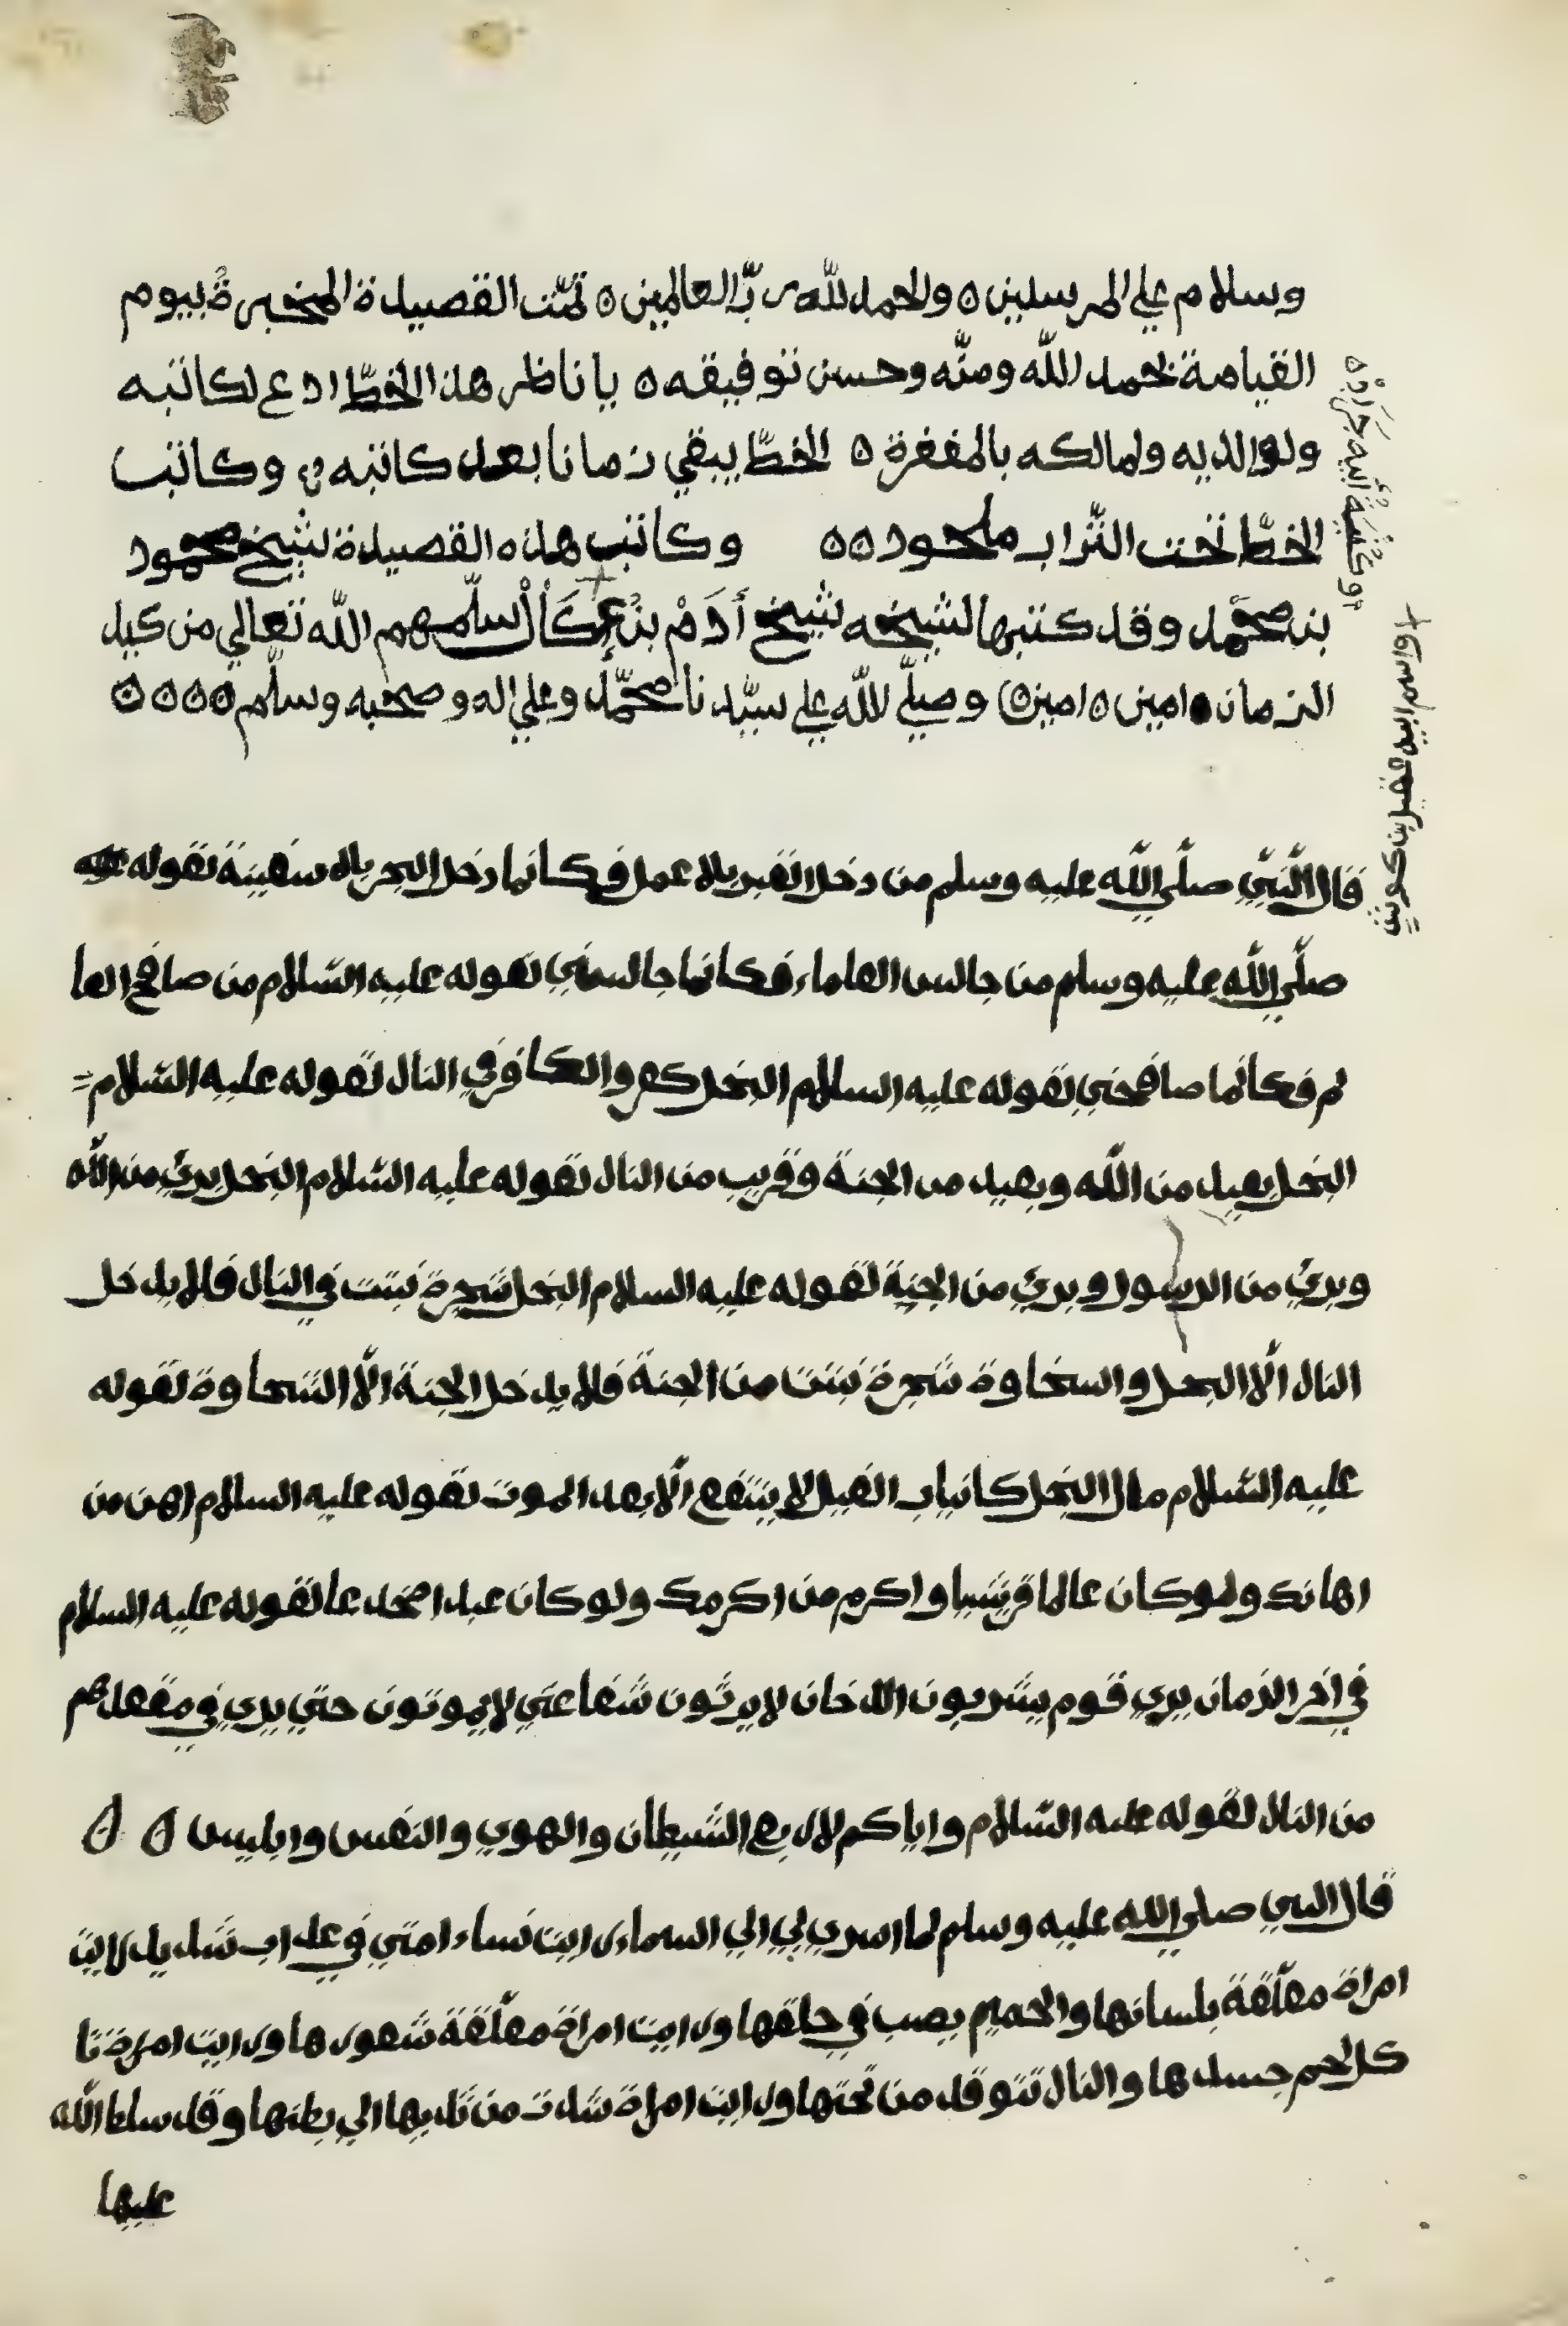 وسلام علي المرسلين ه والحمد لله ربّ العالمين ه تمّت القصيدة المخبرةُ بيوم
القيامة بحمد اللّه ومنّه وحسن توفيقه ه يا ناظر هذا الخطّ ادع لكاتبه
ولوالديه ولمالكه بالمغفرة ه الخطّ يبقي زمانا بعد كاتبه وكاتب
الخطّ تحت التّراب ملحود ه ه وكاتب هذه القصيدة لشيخ محمود
بن محمّد وقد كتبها لشيخه شيخ أَدَمْ بن سلّمهم اللّه تعالي من كيد
الزمان ه امين ه امين ه وصلّي اللّه علي سيّدنا محمّد وعلي اله وصحبه وسلّم ه ه ه ه
قال النّبيّ صلّي اللّه عليه وسلم من دخل القبر بلا عمل فكانما دخل البحر بلاه سفينة لقوله
صلّي اللّه عليه وسلم من جالس العلماء فكانما جالسني لقوله عليه السّلام من صافح العا
لم فكانما صافحني لقوله عليه السلام البخل كفر والكافر في النار لقوله عليه السّلام =
البخل بعيد من اللّه وبعيد من الجنة وقريب من النار لقوله عليه السّلام البخل بريٌ من اللّه
وبريٌ من الرسول وبريٌ من الجنة لقوله عليه السلام البخل شجرة نبتت في النار فلا يدخل
النار الّا البخل والسخاوة شجرة نبتت من الجنة فلا يدخل الجنة الّا السّخاوة لقوله
عليه السّلام مال البخل كانياب الفيل لا ينتفع الّا بعد الموت لقوله عليه السلام اهن من
اهانك ولوكان عالما قريشيا واكرم من اكرمك ولوكان عبدا لقوله عليه السلام
في اخر الزمان يري قوم يشربون الدخان لا يرثون شفاعتي لا يموتون حتي يري في مقعدهم
من النار لقوله عليه السّلام واياكم لاربع الشّيطان والهوي والنفس وابليس ه ه
قال النبي صلي اللّه عليه وسلم لما اسري لي الي السماء رايت نساء امتي في عذاب شديد رايت
امراة معلّقة بلسانها والحميم يصب في حلقها ورايت امراة معلّقة شعورها ورايت امراة تا
كل لحم جسدها والنار تتوقد من تحتها ورايت امراة شدت من ثديها الي بطنها وقد سلط اللّه
عليها